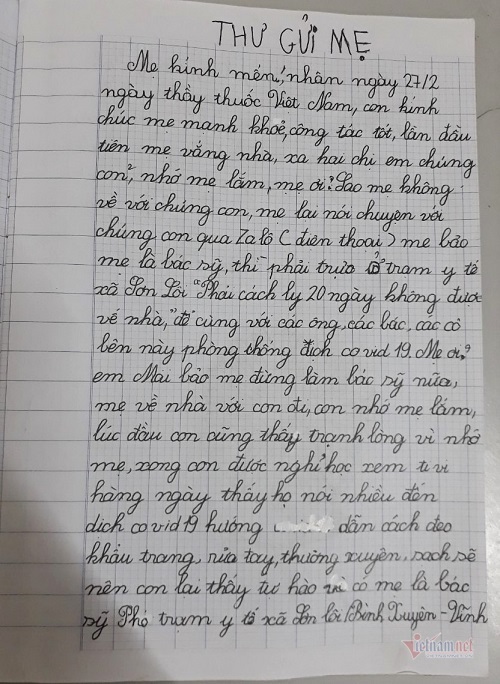 THƯ GỬI MẸ
Mẹ kính mến! nhân ngày 27/2
ngày thầy thuốc Việt Nam, con kính
chúc mẹ mạnh khoẻ, công tác tốt, lần đầu
tiên mẹ vắng nhà, xa hai chị em chúng
con, nhớ mẹ lắm, mẹ ơi? Sao mẹ không
về với chúng con, mẹ lại nói chuyện với
chúng con qua Za lô (điện thoại) mẹ bảo
mẹ là bác sỹ, thì phải trực ở trạm y tế
xã Sơn Lôi "Phải cách ly 20 ngày không được
về nhà," để cùng với các ông, các bác, các cô
bên này phòng chống địch covid 19. Mẹ ơi?
em Mai bảo mẹ đừng làm bác sỹ nữa,
mẹ về nhà với con đi, con nhớ mẹ lắm,
lúc đầu con cũng thấy trạnh lòng vì nhớ
mẹ, xong con được nghỉ học xem ti vi
hàng ngày thấy họ nói nhiều đến
dịch covid 19 hướng dẫn cách đeo
khẩu trang, rửa tay, thường xuyên, sạch sẽ
nên con lại thấy tự hào vì có mẹ là bác
sỹ Phó trạm y tế xã Sơn lôi/Bình Xuyên - Vĩnh
vietnamnet